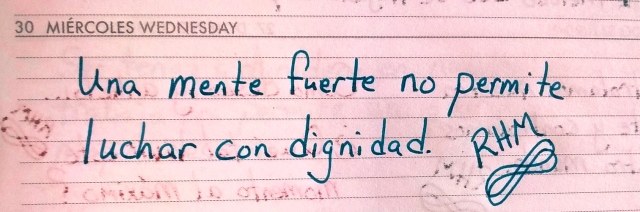 30 MIÉRCOLES WEDNESDAY
Una mente fuerte no permite
luchar con dignidad. RHM